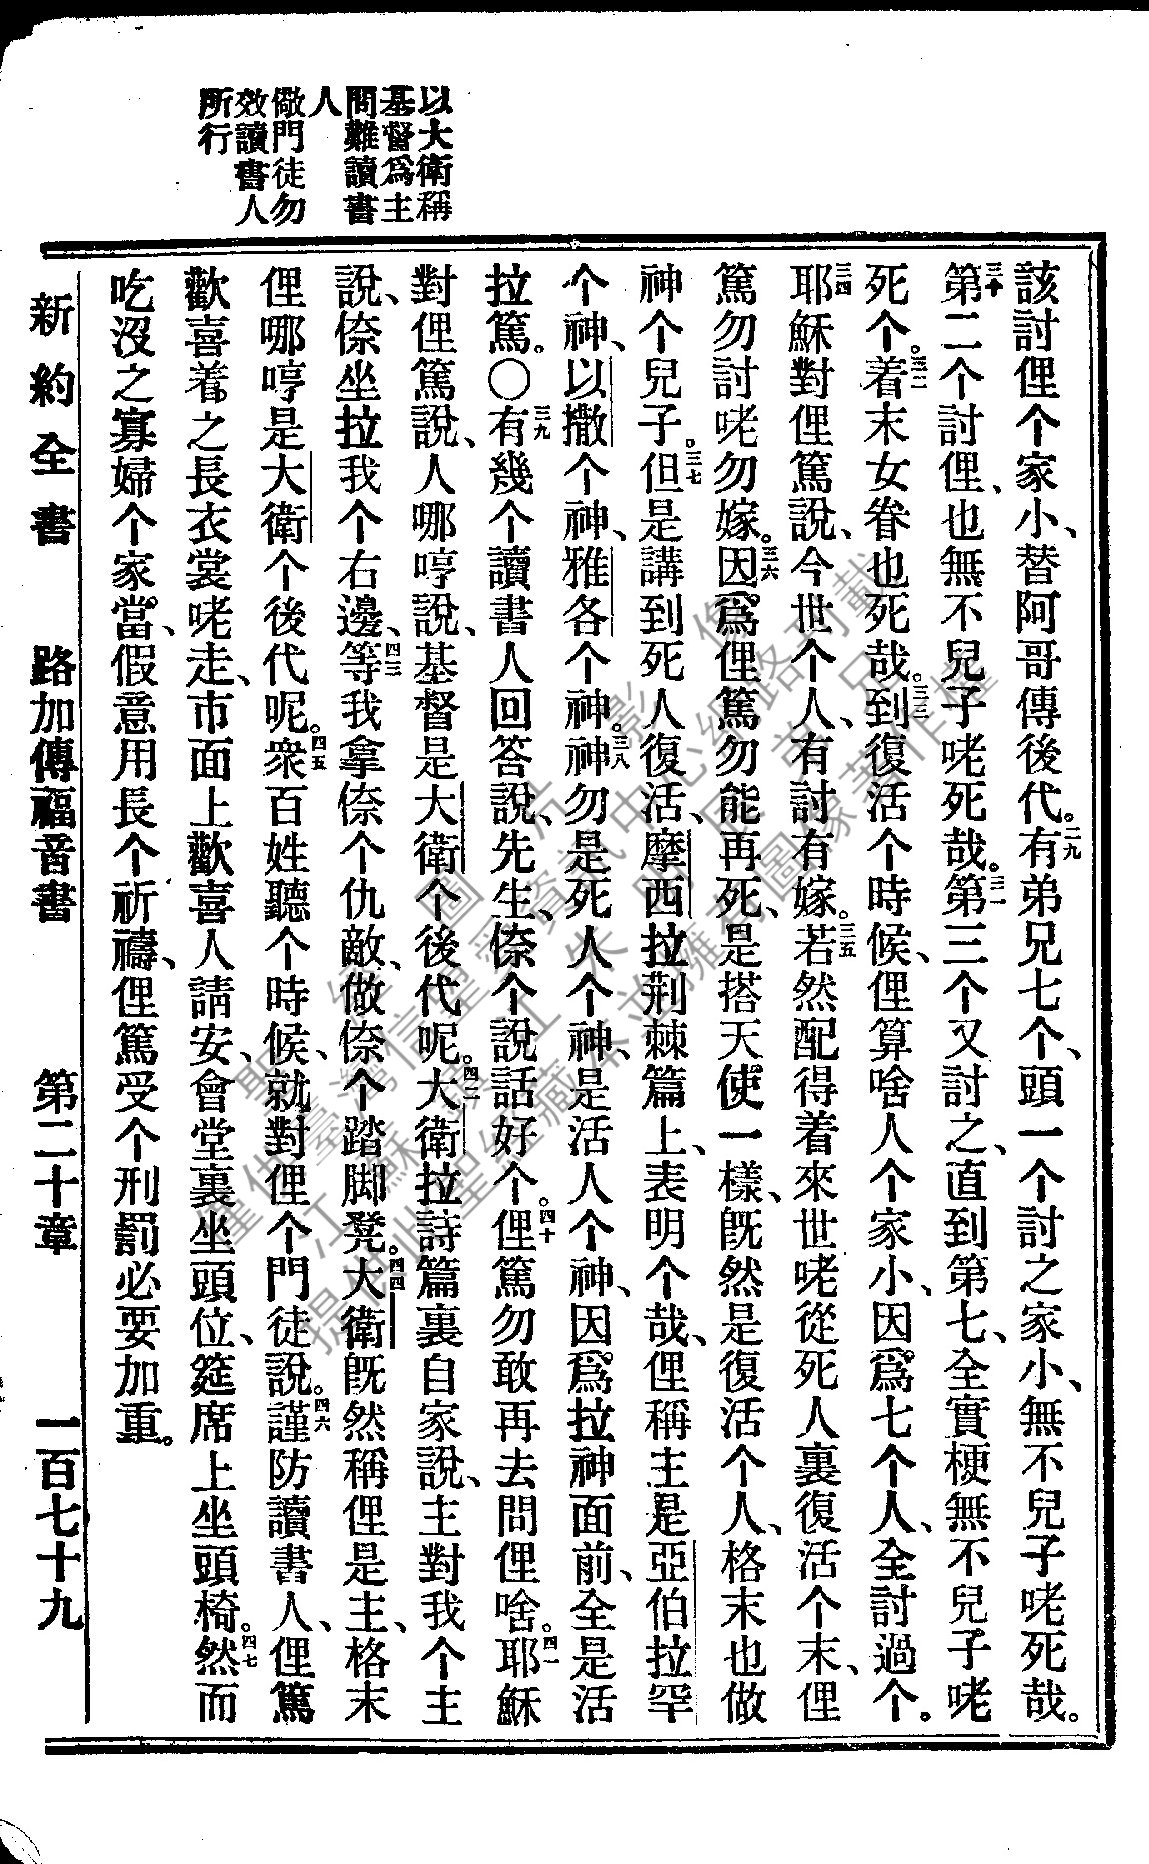 以大衛稱
基督爲主
問難讀書
人
儆門徒勿
效讀書人
所行
該討俚个家小、替阿哥傳後代。二九有弟兄七个、頭一个討之家小、無不兒子咾死哉。
三十第二个討俚、也無不兒子咾死哉。三一第三个又討之、直到第七、全實梗無不兒子咾
死个。三二着末女眷也死哉。三三到復活个時候、俚算啥人个家小、因爲七个人、全討過个。
三四耶穌對俚篤說、今世个人、有討有嫁。三五若然配得着來世咾從死人裏復活个末、俚
篤勿討咾勿嫁。三六因爲俚篤勿能再死、是搭天使一樣、旣然是復活个人、格末也做
神个兒子。三七但是講到死人復活、摩西拉荆棘篇上、表明个哉、俚稱主是亞伯拉罕
个神、以撒个神、雅各个神。三八神勿是死人个神、是活人个神、因爲拉神面前、全是活
拉篤。〇三九有幾个讀書人回答說、先生、倷个說話好个。四十俚篤勿敢再去問俚啥。四一耶穌
對俚篤說、人哪哼說、基督是大衛个後代呢。四二大衛拉詩篇裏自家說、主對我个主
說、倷坐拉我个右邊、四三等我拿倷个仇敵、做倷个踏脚凳。四四大衛旣然稱俚是主、格末
俚哪哼是大衛个後代呢。四五衆百姓聽个時候、就對俚个門徒說。四六謹防讀書人、俚篤
歡喜着之長衣裳咾走、市面上歡喜人請安、會堂裏坐頭位、筵席上坐頭椅。四七然而
吃沒之寡婦个家當、假意用長个祈禱、俚篤受个刑罰必要加重。
新約全書 路加傳福音書 第二十章 一百七十九